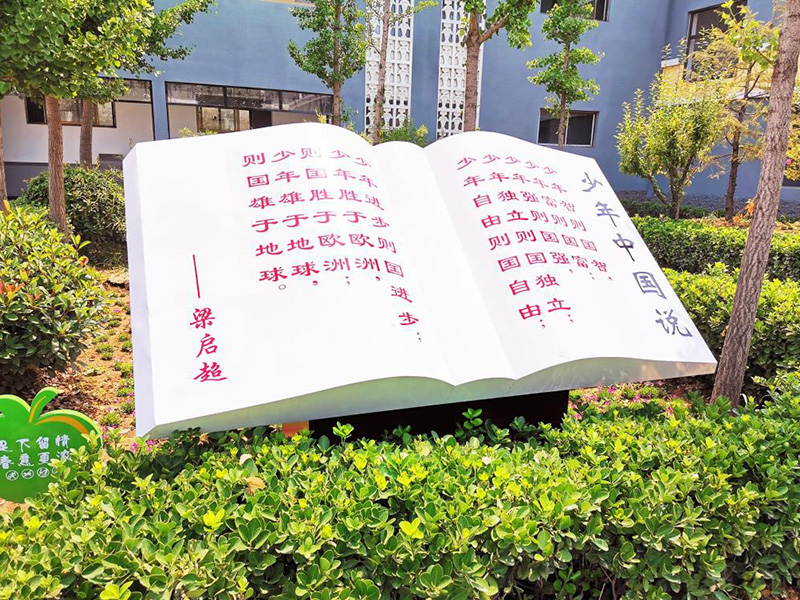 少年中国说
少年智则国智,
少年富则国富;
少年强则国强,
少年独立则国独立;
少年自由则国自由;
少年进步则国进步;
少年胜于欧洲,
则国胜于欧洲;
少年雄于地球,
则国雄于地球。
——梁启超
足下留情
春意更浓